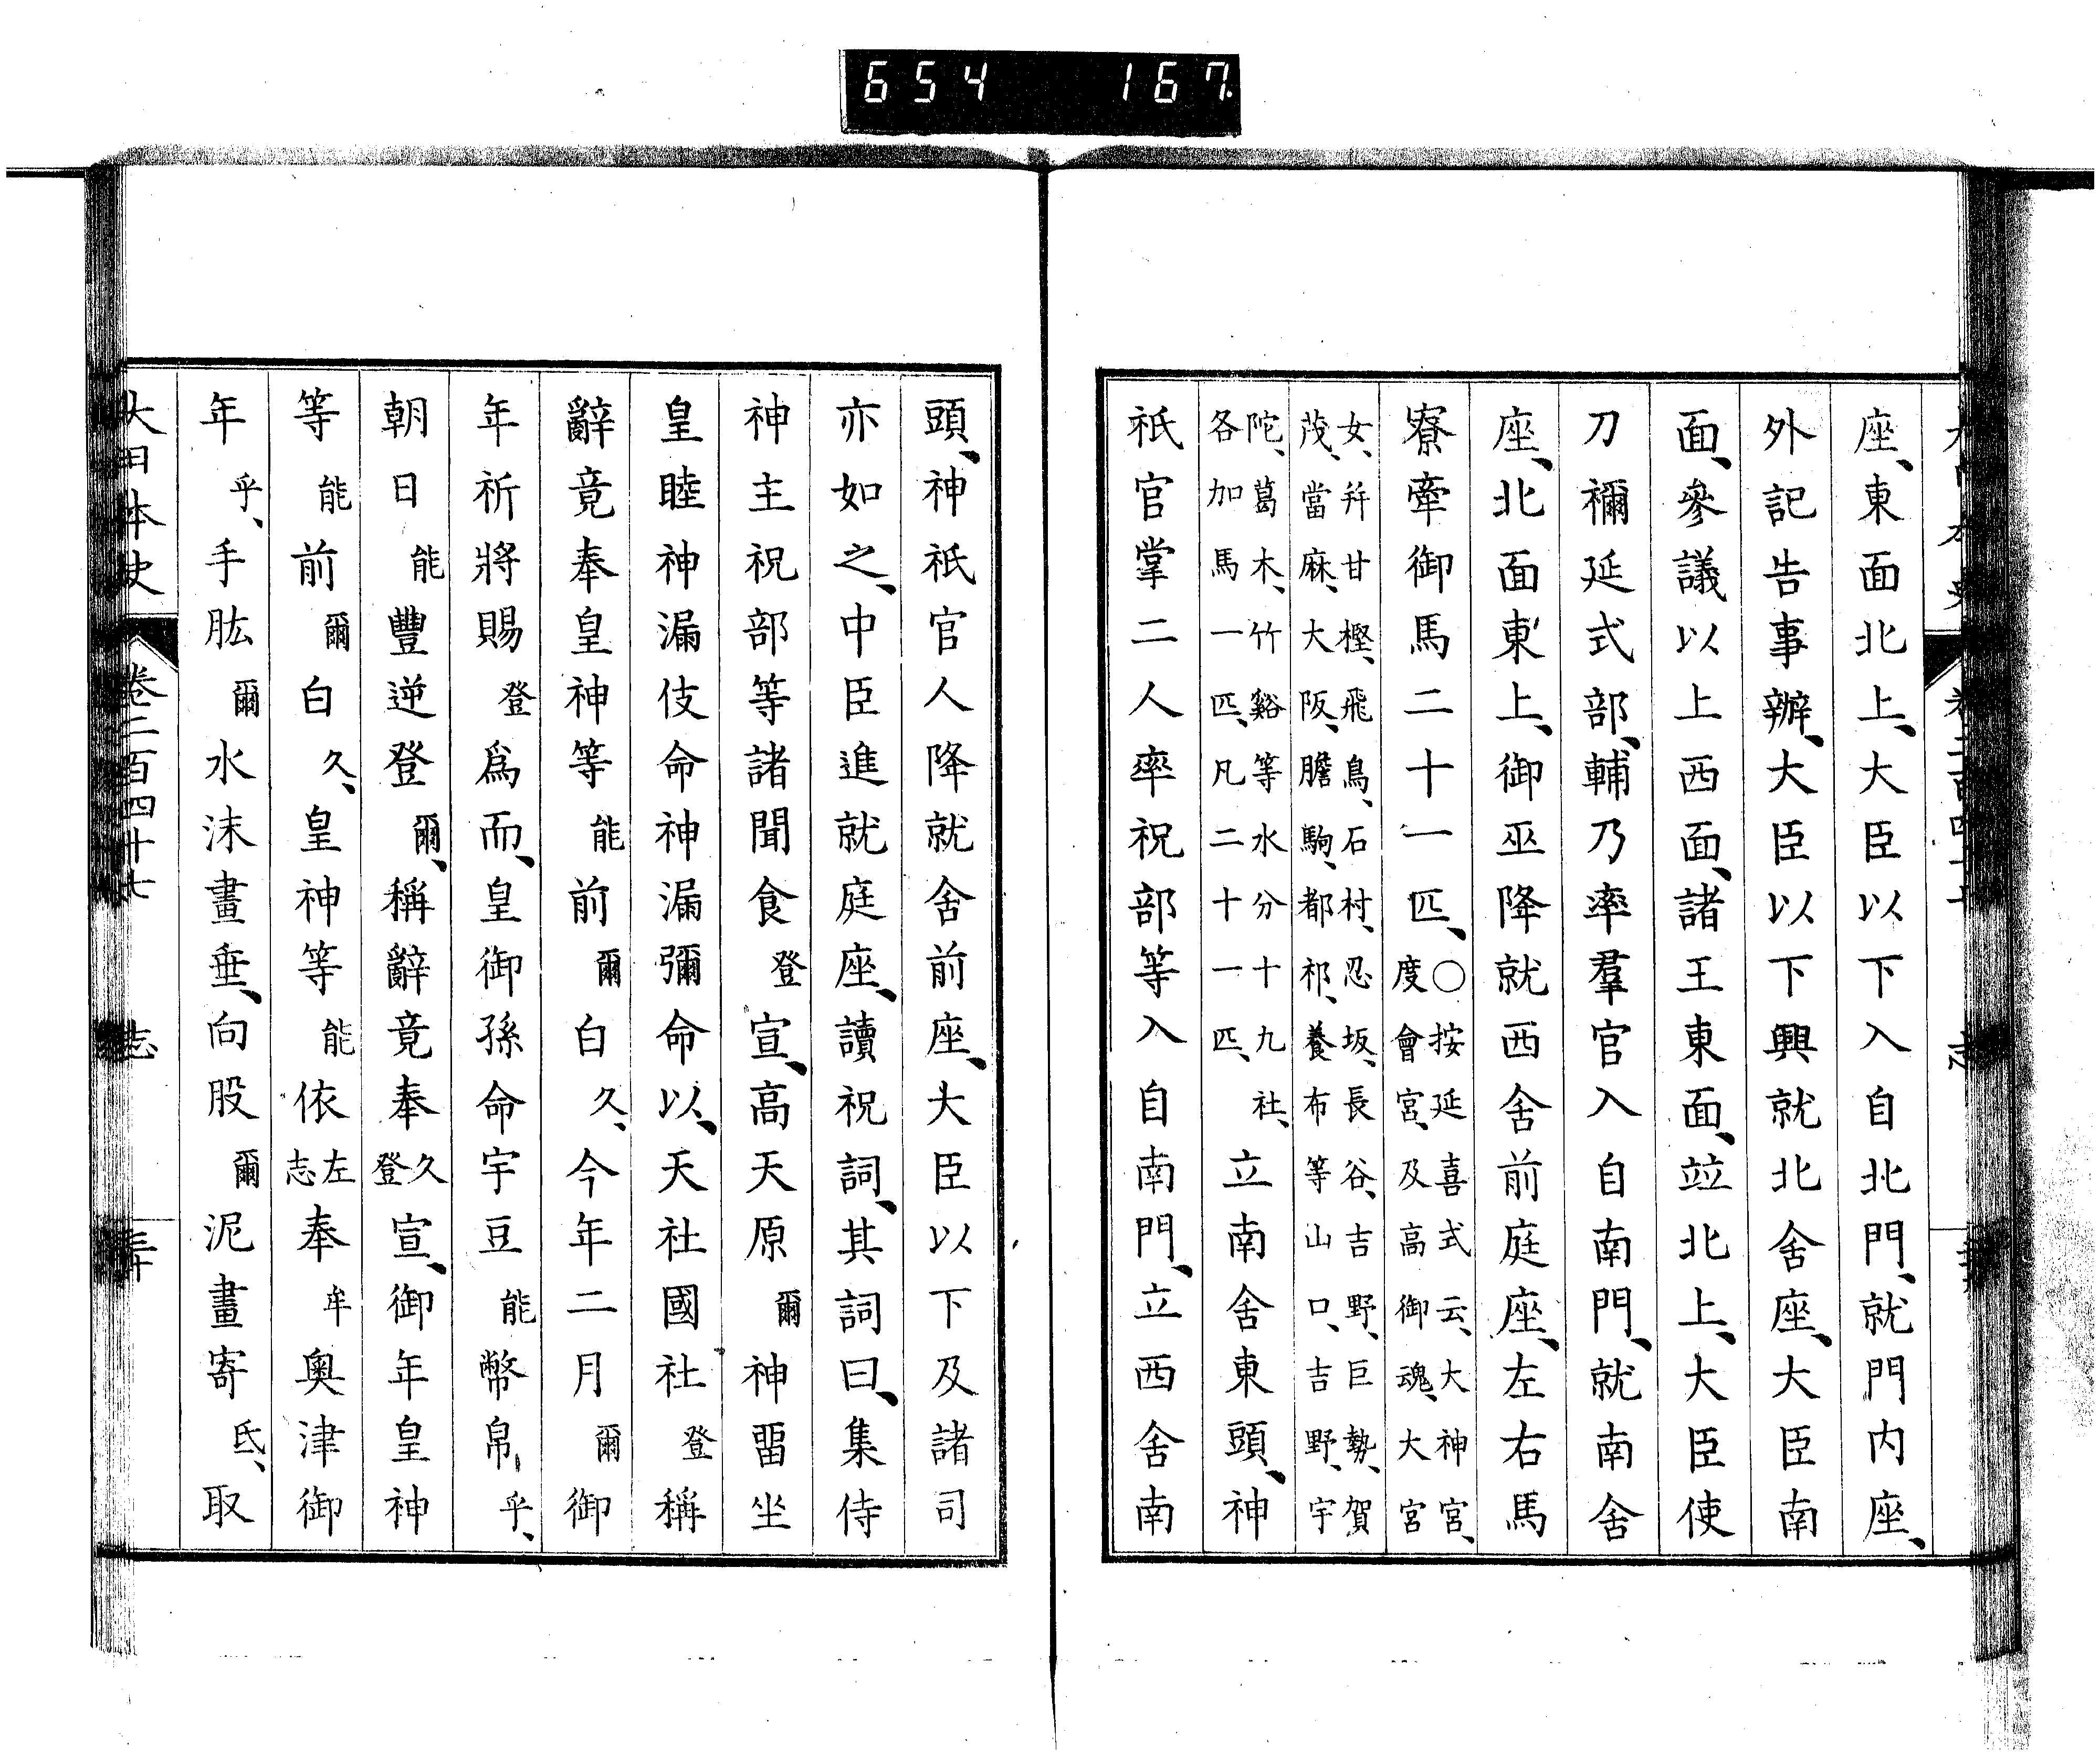 654 167
座、東面北上、大臣以下入自北門、就門内座、
外記告事辦、大臣以下興就北舍座、大臣南
面、參議以上西面、諸王東面、竝北上、大臣使
刀禰延式部、輔乃率羣官入自南門、就南舍
座、北面東上、御巫降就西舍前庭座、左右馬
寮牽御馬二十一匹、○按延喜式云、大神宮、度會宮、及高御魂、大宮
女、幷甘樫、飛鳥、石村、忍坂、長谷、吉野、巨勢、賀茂、當麻、大阪、膽駒、都祁、養布等山口、吉野、宇
陀、葛木、竹谿等水分十九社、各加馬一匹、凡二十一匹、立南舍東頭、神
祇官掌二人率祝部等入自南門、立西舍南
頭、神祇官人降就舍前座、大臣以下及諸司
亦如之、中臣進就庭座、讀祝詞、其詞曰、集侍
神主祝部等諸聞食登宣、高天原爾神畱坐
皇睦神漏伎命神漏彌命以、天社國社登稱
辭竟奉皇神等能前爾白久、今年二月爾御
年祈將賜登爲而、皇御孫命宇豆能幣帛乎、
朝日能豐逆登爾、稱辭竟奉久登宣、御年皇神
等能前爾白久、皇神等能依左志奉牟奧津御
年乎、手肱爾水沫畫垂、向股爾泥畫寄氐、取
大日本史 卷二百四十七 志